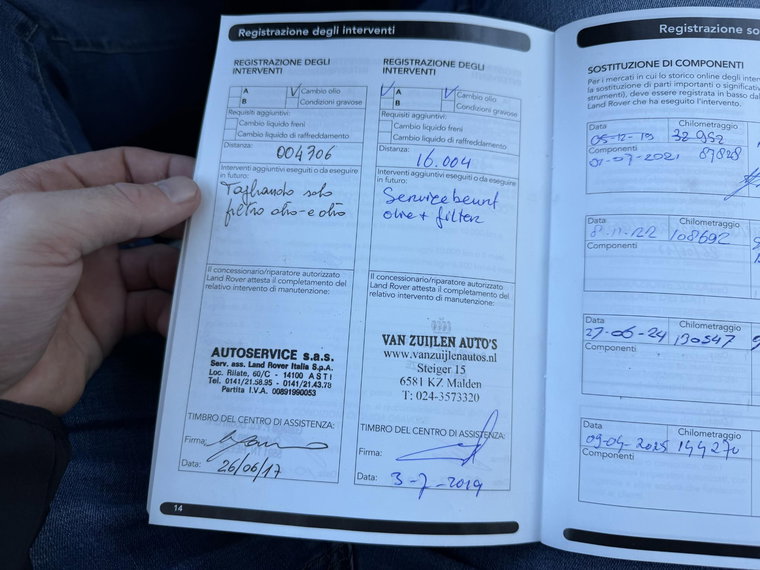 Registrazione degli interventi
REGISTRAZIONE DEGLI
INTERVENTI
A
Cambio olio
B
Condizioni gravose
Requisiti aggiuntivi:
Cambio liquido freni
Cambio liquido di raffreddamento
Distanza:
004306
Interventi aggiuntivi eseguiti o da eseguire
in futuro:
Tagliando solo
filtro olio e olio
Il concessionario/riparatore autorizzato
Land Rover attesta il completamento del
relativo intervento di manutenzione:
AUTOSERVICE s.a.s.
Serv. ass. Land Rover Italia S.p.A.
Loc. Rilate, 60/C - 14100 ASTI
Tel. 0141/21.58.95 - 0141/21.43.78
Partita I.V.A. 00891990053
TIMBRO DEL CENTRO DI ASSISTENZA:
Firma:
Data: 26/06/17
14
REGISTRAZIONE DEGLI
INTERVENTI
A
Cambio olio
B
Condizioni gravose
Requisiti aggiuntivi:
Cambio liquido freni
Cambio liquido di raffreddamento
Distanza:
16.004
Interventi aggiuntivi eseguiti o da eseguire
in futuro:
Servicebeurt
olie + filter
Il concessionario/riparatore autorizzato
Land Rover attesta il completamento del
relativo intervento di manutenzione:
VAN ZUIJLEN AUTO'S
www.vanzuijlenautos.nl
Steiger 15
6581 KZ Malden
T: 024-3573320
TIMBRO DEL CENTRO DI ASSISTENZA:
Firma:
Data: 3-7-2019
Registrazione
SOSTITUZIONE DI COMPONENTI
Per i mercati in cui lo storico online degli
la sostituzione di parti importanti o
strumenti), deve essere registrata in basso
Land Rover che ha eseguito l'intervento.
Data
Chilometraggio
05-12-19 32952
Componenti
01-07-2021 87828
Data
Chilometraggio
8-11-22 108692
Componenti
Data
Chilometraggio
27-06-24 130547
Componenti
Data
Chilometraggio
09-04-2025 144270
Componenti